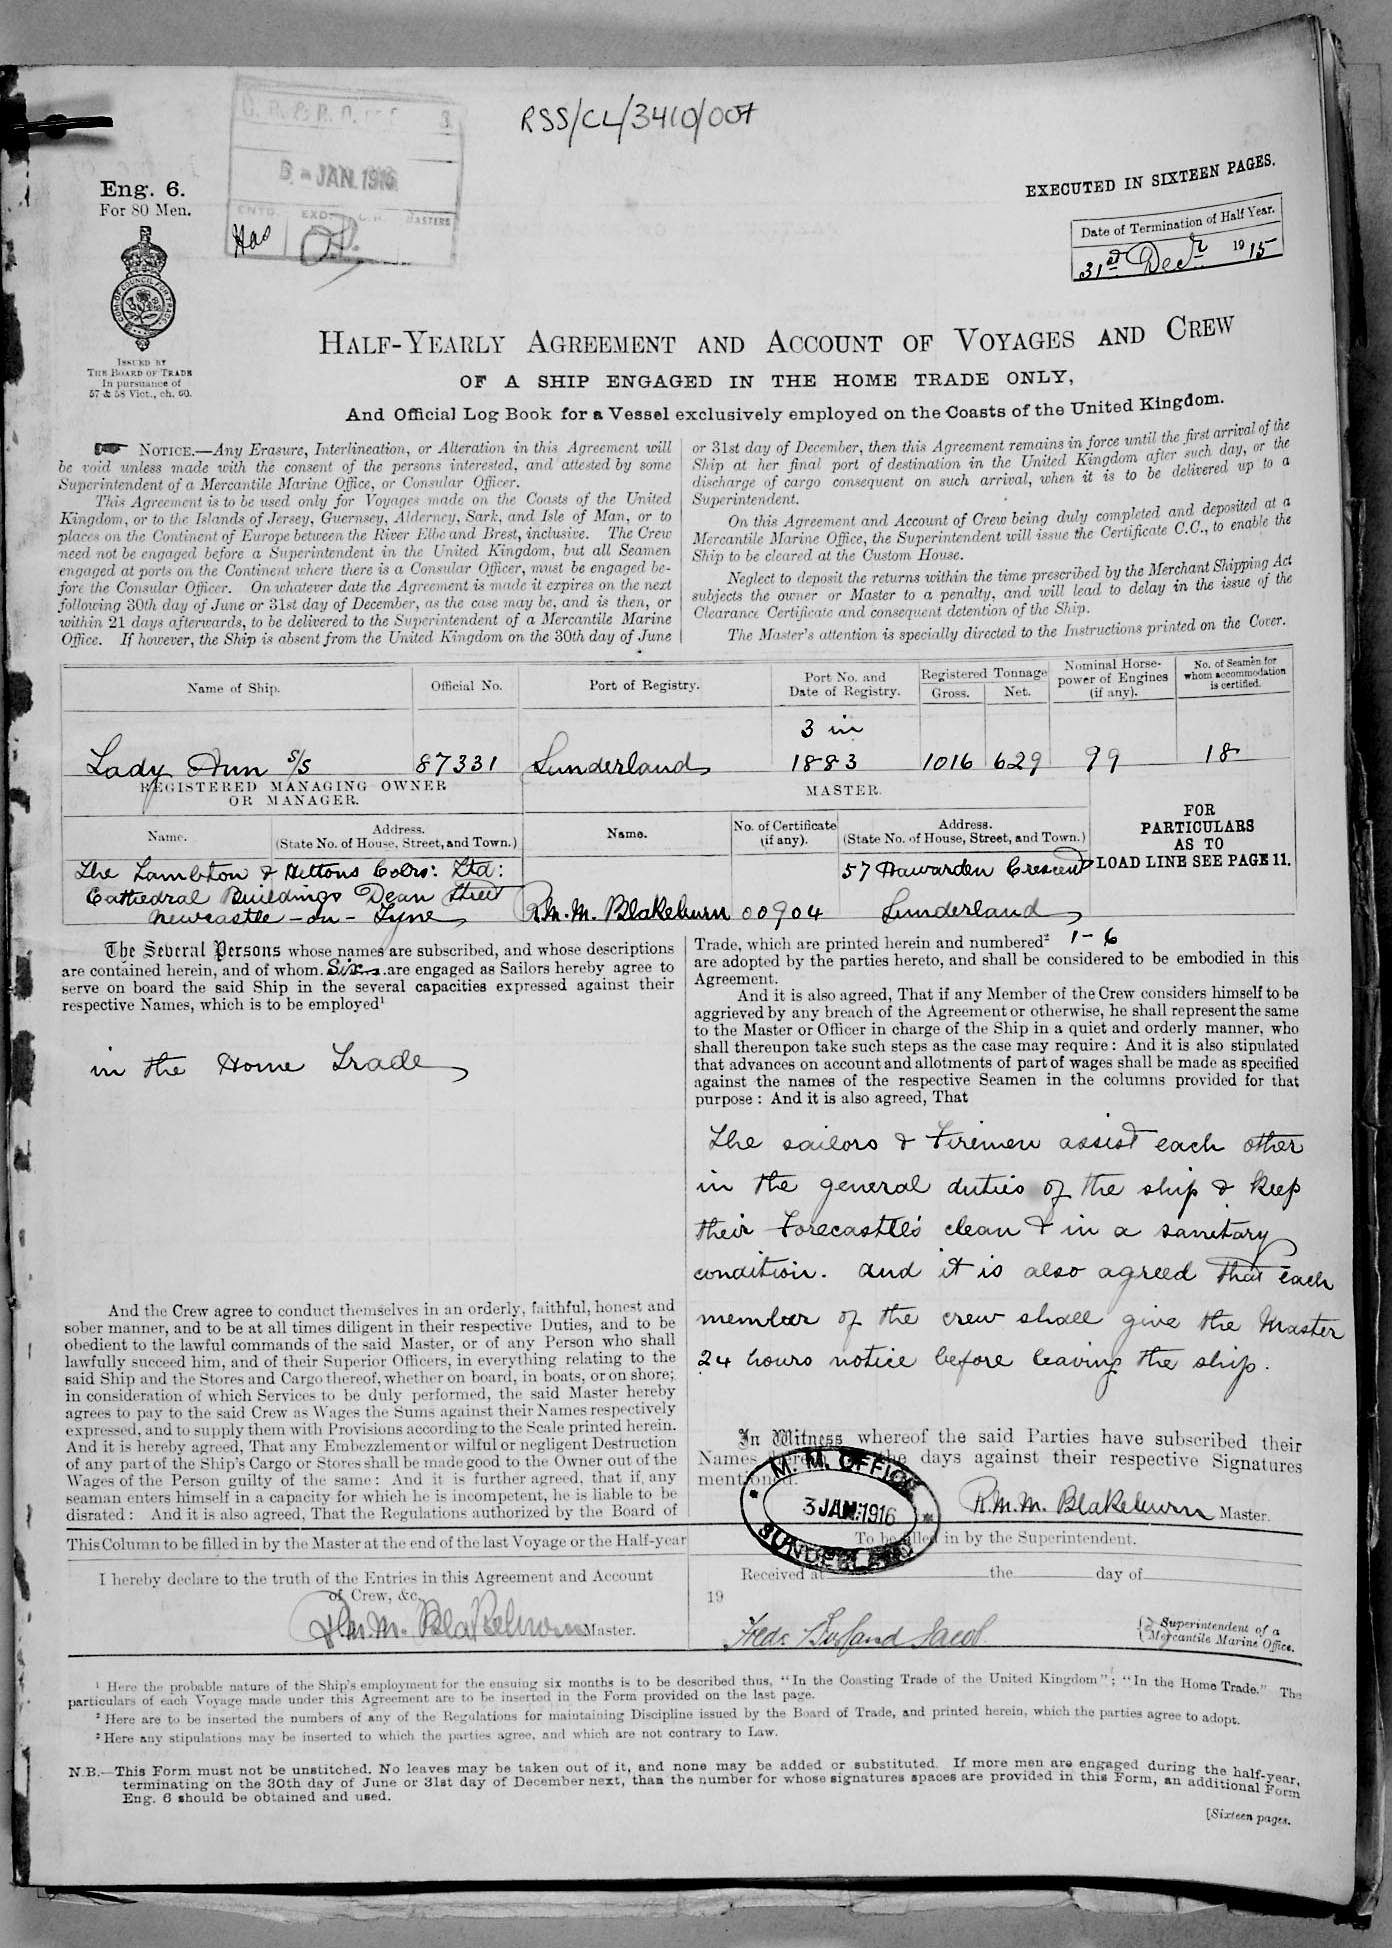 RSS/CL/3410/007
6-JAN.1916
ENTD. EXD. MASTERS
Has
Eng. 6.
For 80 Men.
EXECUTED IN SIXTEEN PAGES.
Date of Termination of Half Year.
31st Decr 1915
ISSUED BY
THE BOARD OF TRADE
In pursuance of
57 & 58 Vict., ch. 60.
HALF-YEARLY AGREEMENT AND ACCOUNT OF VOYAGES AND CREW
OF A SHIP ENGAGED IN THE HOME TRADE ONLY,
And Official Log Book for a Vessel exclusively employed on the Coasts of the United Kingdom.
NOTICE.—Any Erasure, Interlineation, or Alteration in this Agreement will
be void unless made with the consent of the persons interested, and attested by some
Superintendent of a Mercantile Marine Office, or Consular Officer.
This Agreement is to be used only for Voyages made on the Coasts of the United
Kingdom, or to the Islands of Jersey, Guernsey, Alderney, Sark, and Isle of Man, or to
places on the Continent of Europe between the River Elbe and Brest, inclusive. The Crew
need not be engaged before a Superintendent in the United Kingdom, but all Seamen
engaged at ports on the Continent where there is a Consular Officer, must be engaged be-
fore the Consular Officer. On whatever date the Agreement is made it expires on the next
following 30th day of June or 31st day of December, as the case may be, and is then, or
within 21 days afterwards, to be delivered to the Superintendent of a Mercantile Marine
Office. If however, the Ship is absent from the United Kingdom on the 30th day of June
or 31st day of December, then this Agreement remains in force until the first arrival of the
Ship at her final port of destination in the United Kingdom after such day, or the
discharge of cargo consequent on such arrival, when it is to be delivered up to a
Superintendent.
On this Agreement and Account of Crew being duly completed and deposited at a
Mercantile Marine Office, the Superintendent will issue the Certificate C.C., to enable the
Ship to be cleared at the Custom House.
Neglect to deposit the returns within the time prescribed by the Merchant Shipping Act
subjects the owner or Master to a penalty, and will lead to delay in the issue of the
Clearance Certificate and consequent detention of the Ship.
The Master's attention is specially directed to the Instructions printed on the Cover.
Name of Ship. Official No. Port of Registry. Port No. and Date of Registry. Registered Tonnage Gross. Net. Nominal Horse-power of Engines (if any). No. of Seamen for whom accommodation is certified.
3 in
Lady Ann s/s 87331 Sunderland 1883 1016 629 99 18
REGISTERED MANAGING OWNER
OR MANAGER.
MASTER.
Name. Address. (State No. of House, Street, and Town.) Name. No. of Certificate (if any). Address. (State No. of House, Street, and Town.)
FOR
PARTICULARS
AS TO
LOAD LINE SEE PAGE 11.
The Lambton & Hettons Colrs: Ltd:
Cathedral Buildings Dean Street
Newcastle-on-Tyne
R.M.M. Blakeburn 00904
57 Hawarden Crescent
Sunderland
The Several Persons whose names are subscribed, and whose descriptions
are contained herein, and of whom Six are engaged as Sailors hereby agree to
serve on board the said Ship in the several capacities expressed against their
respective Names, which is to be employed¹
in the Home Trade
And the Crew agree to conduct themselves in an orderly, faithful, honest and
sober manner, and to be at all times diligent in their respective Duties, and to be
obedient to the lawful commands of the said Master, or of any Person who shall
lawfully succeed him, and of their Superior Officers, in everything relating to the
said Ship and the Stores and Cargo thereof, whether on board, in boats, or on shore;
in consideration of which Services to be duly performed, the said Master hereby
agrees to pay to the said Crew as Wages the Sums against their Names respectively
expressed, and to supply them with Provisions according to the Scale printed herein.
And it is hereby agreed, That any Embezzlement or wilful or negligent Destruction
of any part of the Ship's Cargo or Stores shall be made good to the Owner out of the
Wages of the Person guilty of the same: And it is further agreed, that if any
seaman enters himself in a capacity for which he is incompetent, he is liable to be
disrated: And it is also agreed, That the Regulations authorized by the Board of
Trade, which are printed herein and numbered² 1-6
are adopted by the parties hereto, and shall be considered to be embodied in this
Agreement.
And it is also agreed, That if any Member of the Crew considers himself to be
aggrieved by any breach of the Agreement or otherwise, he shall represent the same
to the Master or Officer in charge of the Ship in a quiet and orderly manner, who
shall thereupon take such steps as the case may require: And it is also stipulated
that advances on account and allotments of part of wages shall be made as specified
against the names of the respective Seamen in the columns provided for that
purpose: And it is also agreed, That
The sailors & Firemen assist each other
in the general duties of the ship & keep
their Forecastle's clean & in a sanitary
condition. and it is also agreed that each
member of the crew shall give the Master
24 hours notice before leaving the ship.
In Witness whereof the said Parties have subscribed their
Names herein the days against their respective Signatures
mentioned.
R.M.M. Blakeburn Master.
M. M. OFFICE
3 JAN 1916
SUNDERLAND
This Column to be filled in by the Master at the end of the last Voyage or the Half-year
I hereby declare to the truth of the Entries in this Agreement and Account
of Crew, &c.
R.M.M. Blakeburn Master.
To be filled in by the Superintendent.
Received at the day of
19
Superintendent of a
Mercantile Marine Office.
¹ Here the probable nature of the Ship's employment for the ensuing six months is to be described thus, "In the Coasting Trade of the United Kingdom"; "In the Home Trade." The
particulars of each Voyage made under this Agreement are to be inserted in the Form provided on the last page.
² Here are to be inserted the numbers of any of the Regulations for maintaining Discipline issued by the Board of Trade, and printed herein, which the parties agree to adopt.
³ Here any stipulations may be inserted to which the parties agree, and which are not contrary to Law.
N.B.—This Form must not be unstitched. No leaves may be taken out of it, and none may be added or substituted. If more men are engaged during the half-year,
terminating on the 30th day of June or 31st day of December next, than the number for whose signatures spaces are provided in this Form, an additional Form
Eng. 6 should be obtained and used.
[Sixteen pages.